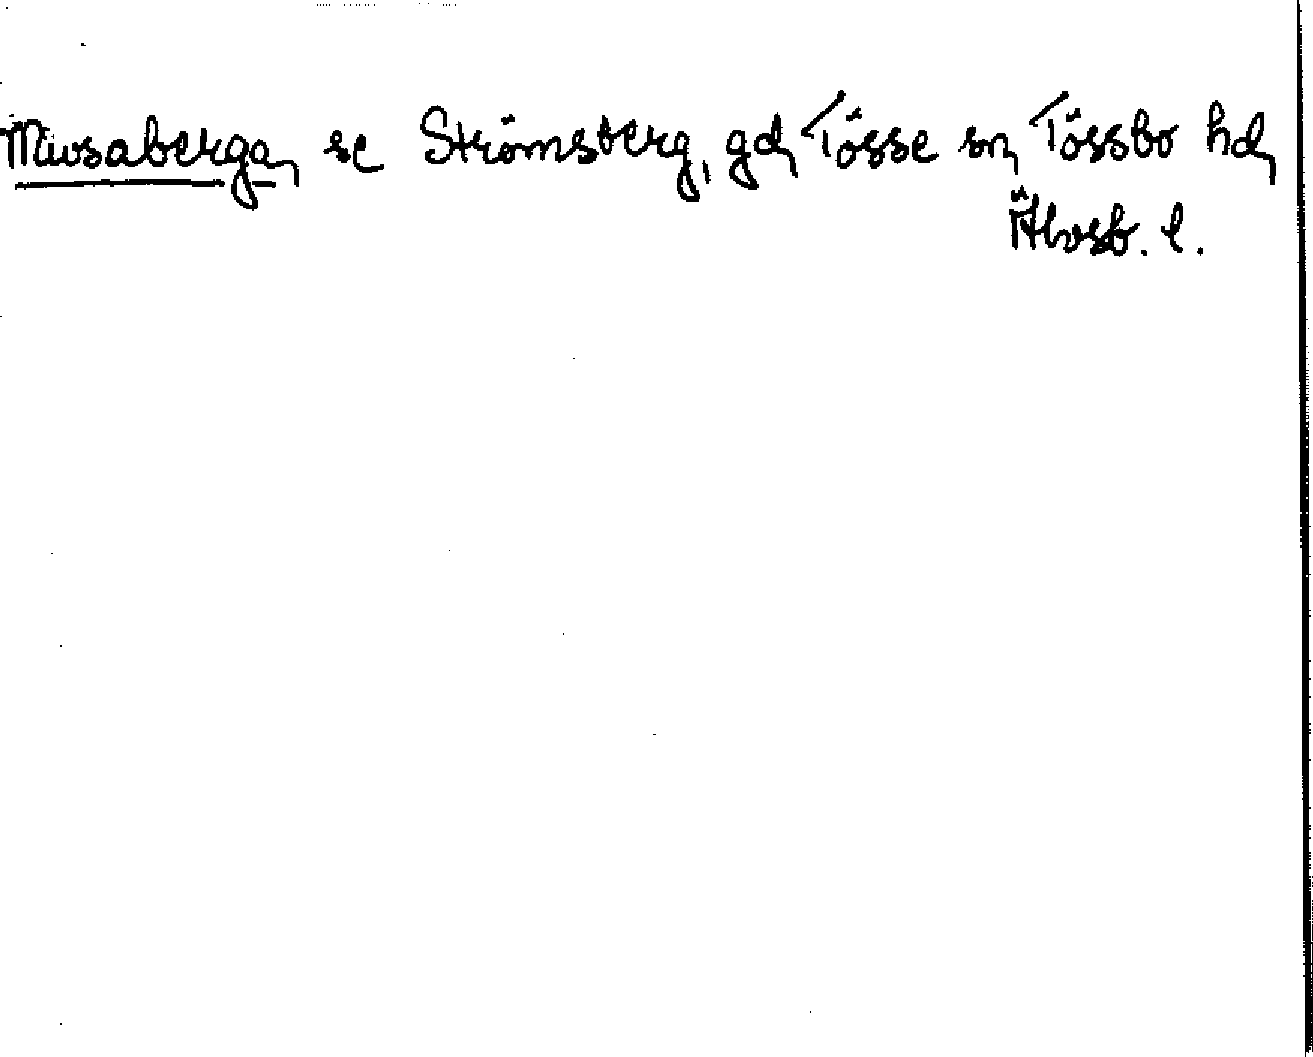 Miosaberga, se Strömsberg, gd, Tösse sn, Tössbo hd,
Älvsb. l.